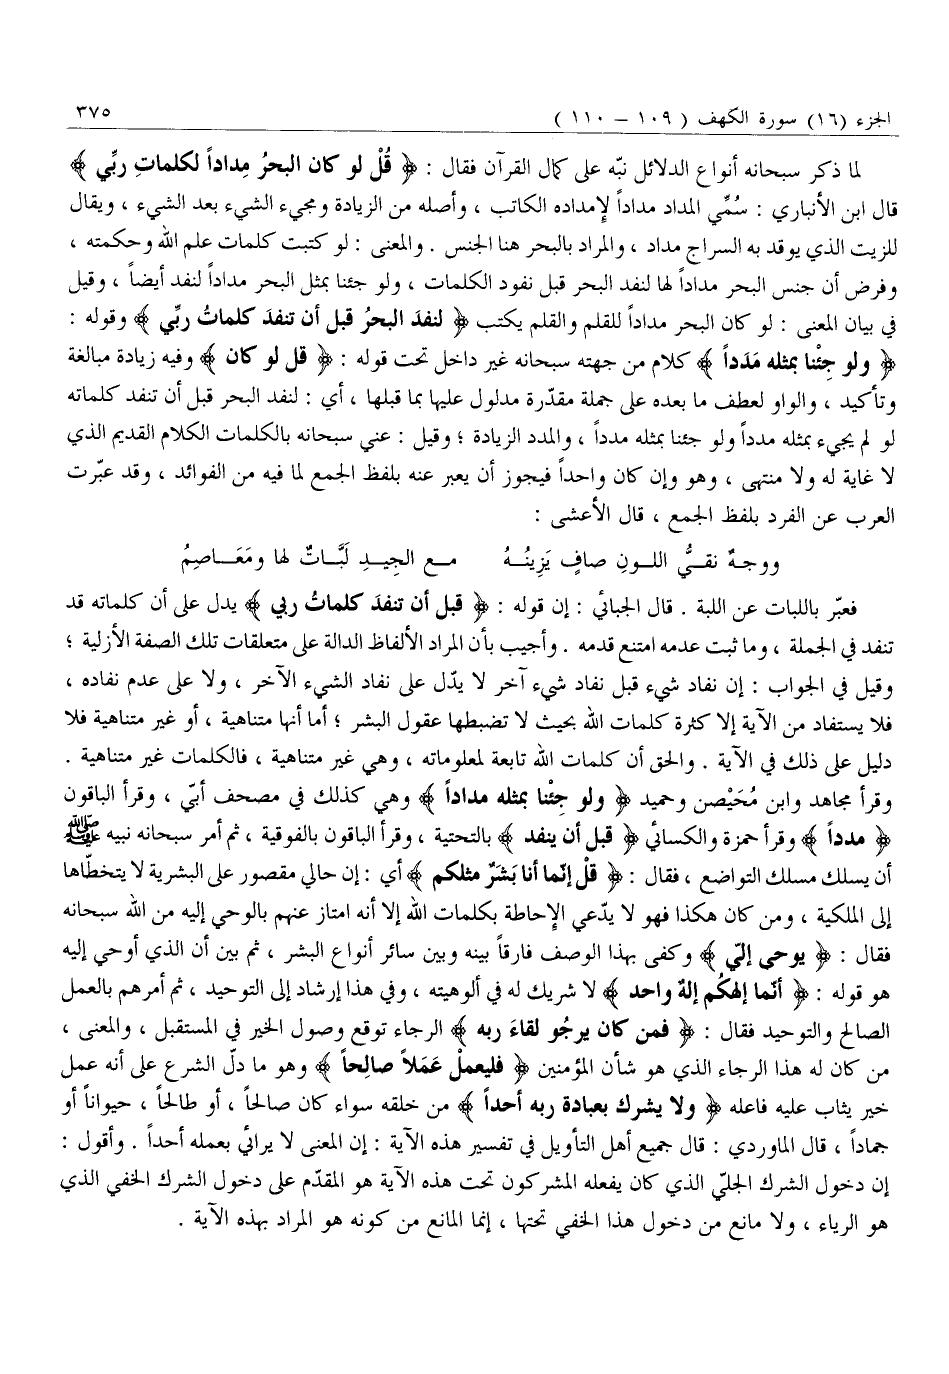 الجزء (١٦) سورة الكهف ( ١٠٩ – ١١٠ )
٣٧٥
لما ذكر سبحانه أنواع الدلائل نبّه على كمال القرآن فقال : ﴿ قُلْ لو كان البحرُ مِداداً لكلماتِ ربِّي ﴾
قال ابن الأنباري : سُمِّي المداد مداداً لإِمداده الكاتب ، وأصله من الزيادة ومجيء الشيء بعد الشيء ، ويقال
للزيت الذي يوقد به السراج مداد ، والمراد بالبحر هنا الجنس . والمعنى : لو كتبت كلمات علم الله وحكمته ،
وفرض أن جنس البحر مداداً لها لنفد البحر قبل نفود الكلمات ، ولو جئنا بمثل البحر مداداً لنفد أيضاً ، وقيل
في بيان المعنى : لو كان البحر مداداً للقلم والقلم يكتب ﴿ لنفدَ البحرُ قبل أن تنفدَ كلماتُ ربِّي ﴾ وقوله :
﴿ ولو جِئْنا بمثله مَدَداً ﴾ كلام من جهته سبحانه غير داخل تحت قوله : ﴿ قل لو كان ﴾ وفيه زيادة مبالغة
وتأكيد ، والواو لعطف ما بعده على جملة مقدّرة مدلول عليها بما قبلها ، أي : لنفد البحر قبل أن تنفد كلماته
لو لم يجيء بمثله مدداً ولو جئنا بمثله مدداً ، والمدد الزيادة ؛ وقيل : عني سبحانه بالكلمات الكلام القديم الذي
لا غاية له ولا منتهى ، وهو وإن كان واحداً فيجوز أن يعبر عنه بلفظ الجمع لما فيه من الفوائد ، وقد عبّرت
العرب عن الفرد بلفظ الجمع ، قال الأعشى :
ووجهٌ نقيُّ اللونِ صافٍ يَزِينُهُ مع الجِيدِ لَبَّاتٌ لها ومَعَاصِمُ
فعبّر باللبات عن اللبة . قال الجبائي : إن قوله : ﴿ قبل أن تنفدَ كلماتُ ربي ﴾ يدل على أن كلماته قد
تنفد في الجملة ، وما ثبت عدمه امتنع قدمه . وأجيب بأن المراد الألفاظ الدالة على متعلقات تلك الصفة الأزلية ؛
وقيل في الجواب : إن نفاد شيء قبل نفاد شيء آخر لا يدّل على نفاد الشيء الآخر ، ولا على عدم نفاده ،
فلا يستفاد من الآية إلا كثرة كلمات الله بحيث لا تضبطها عقول البشر ؛ أما أنها متناهية ، أو غير متناهية فلا
دليل على ذلك في الآية . والحق أن كلمات الله تابعة لمعلوماته ، وهي غير متناهية ، فالكلمات غير متناهية .
وقرأ مجاهد وابن مُحَيْصن وحميد ﴿ ولو جِئْنا بمثله مداداً ﴾ وهي كذلك في مصحف أبيّ ، وقرأ الباقون
﴿ مدداً ﴾ وقرأ حمزة والكسائي ﴿ قبل أن ينفد ﴾ بالتحتية ، وقرأ الباقون بالفوقية ، ثم أمر سبحانه نبيه ﷺ
أن يسلك مسلك التواضع ، فقال : ﴿ قلْ إنّما أنا بَشَرٌ مثلكم ﴾ أي : إن حالي مقصور على البشرية لا يتخطّاها
إلى الملكية ، ومن كان هكذا فهو لا يدّعي الإِحاطة بكلمات الله إلا أنه امتاز عنهم بالوحي إليه من الله سبحانه
فقال : ﴿ يوحى إليّ ﴾ وكفى بهذا الوصف فارقاً بينه وبين سائر أنواع البشر ، ثم بين أن الذي أوحي إليه
هو قوله : ﴿ أنّما إلهكُم إلهٌ واحد ﴾ لا شريك له في ألوهيته ، وفي هذا إرشاد إلى التوحيد ، ثم أمرهم بالعمل
الصالح والتوحيد فقال : ﴿ فمن كان يرجُو لقاءَ ربه ﴾ الرجاء توقع وصول الخير في المستقبل ، والمعنى ،
من كان له هذا الرجاء الذي هو شأن المؤمنين ﴿ فليعملْ عَمَلاً صالِحاً ﴾ وهو ما دلّ الشرع على أنه عمل
خير يثاب عليه فاعله ﴿ ولا يشرك بعبادة ربه أحداً ﴾ من خلقه سواء كان صالحاً ، أو طالحاً ، حيواناً أو
جماداً ، قال الماوردي : قال جميع أهل التأويل في تفسير هذه الآية : إن المعنى لا يرائي بعمله أحداً . وأقول :
إن دخول الشرك الجليّ الذي كان يفعله المشركون تحت هذه الآية هو المقدّم على دخول الشرك الخفي الذي
هو الرياء ، ولا مانع من دخول هذا الخفي تحتها ، إنما المانع من كونه هو المراد بهذه الآية .